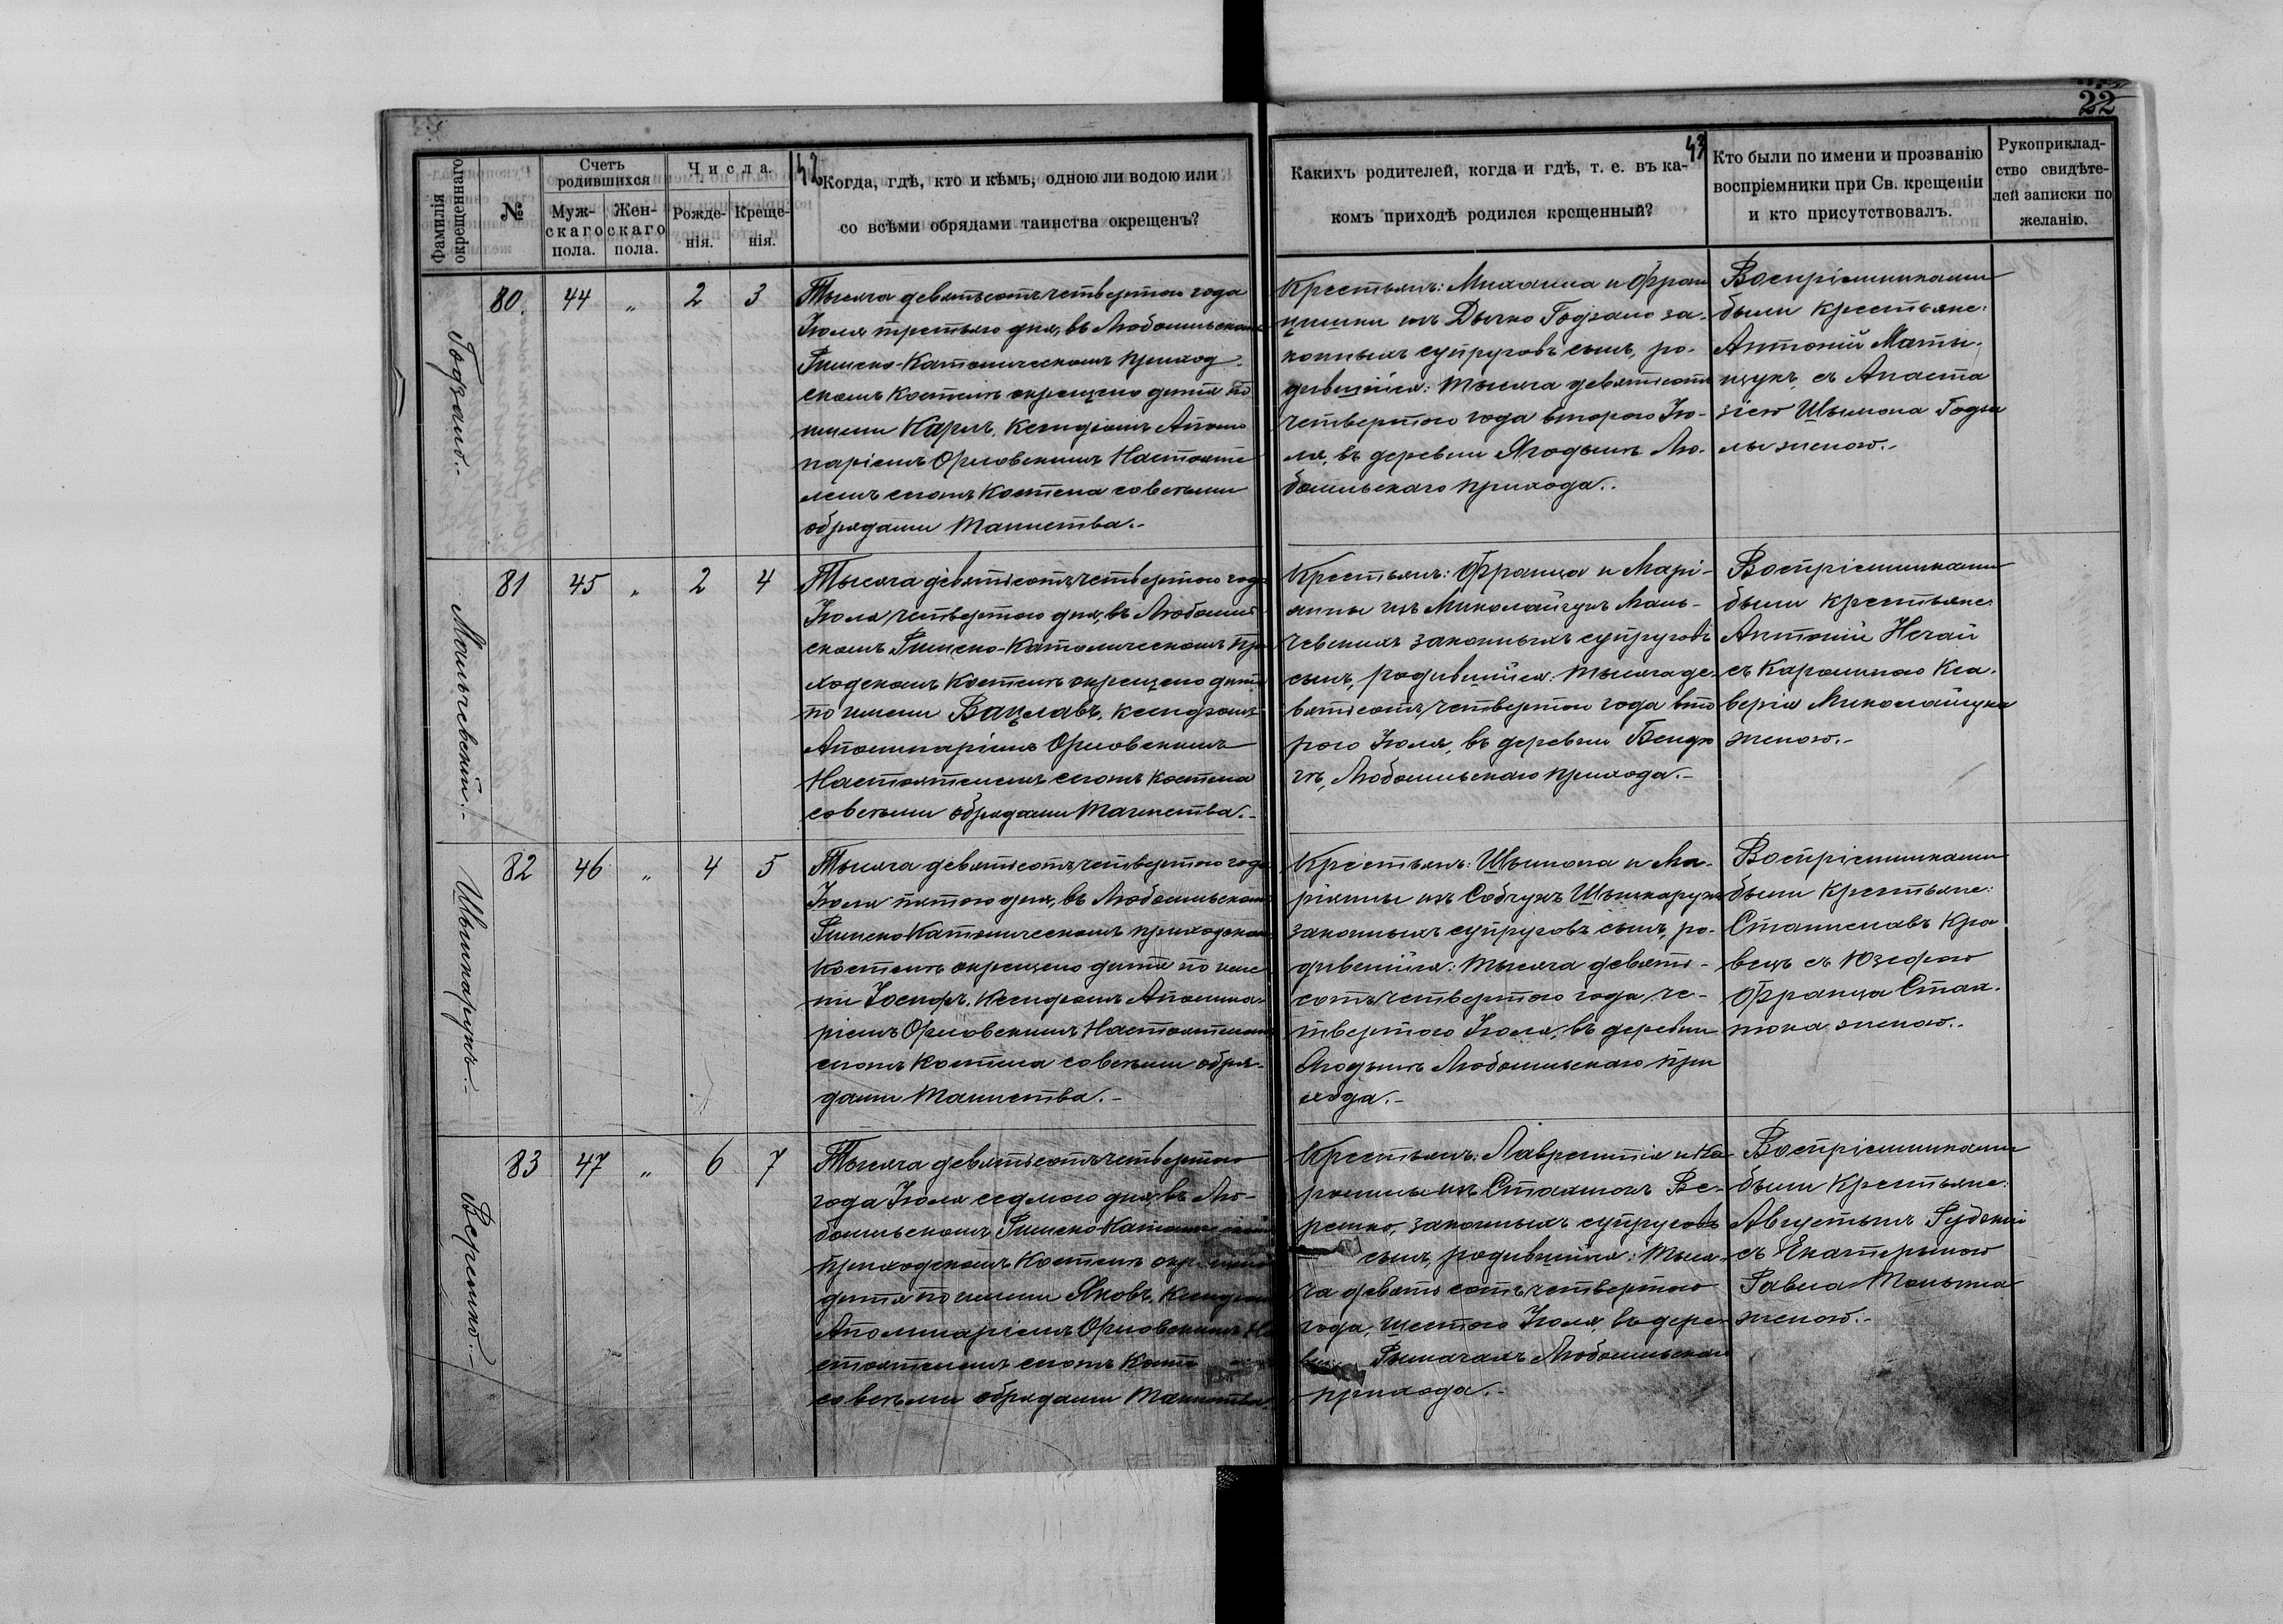 22
42
43
Фамилія окрещеннаго
№
Счетъ родившихся
Муж-
скаго
пола.
Жен-
скаго
пола.
Числа.
Рожде-
нія.
Креще-
нія.
Когда, гдѣ, кто и кѣмъ, одною ли водою или
со всѣми обрядами таинства окрещенъ?
Какихъ родителей, когда и гдѣ, т. е. въ ка-
комъ приходѣ родился крещенный?
Кто были по имени и прозванію
воспріемники при Св. крещеніи
и кто присутствовалъ.
Рукоприклад-
ство свидѣте-
лей записки по
желанію.
Годзало.-
80.
44
"
2
3
Тысяча девятьсотъ четвертого года
Іюля третьяго дня, въ Любомльскомъ
Римско-Католическомъ приход-
скомъ костелѣ окрещено дитя по
имени Карлъ, Ксендзомъ Аполи
наріемъ Орловскимъ Настояте
лемъ сего костела со всѣми
обрядами Таинства.-
Крестьянъ: Михаила и Фран
цишки изъ Дычко Годзало за-
конныхъ супруговъ сынъ, ро-
дившійся: Тысяча девятьсотъ
четвертого года второго Ію-
ля, въ деревни Ягодынѣ Лю-
бомльскаго прихода.-
Воспріемниками
были крестьяне:
Антоній Маты-
щукъ съ Анаста
зіею Шымона Годза
лы женою.-
Мальчевскій.-
81
45
"
2
4
Тысяча девятьсотъ четвертого года
Іюля четвертого дня, въ Любомль-
скомъ Римско-Католическомъ при
ходскомъ костелѣ окрещено дитя
по имени Вацлавъ, ксендзомъ
Аполинаріемъ Орловскимъ
Настоятелемъ сего костела
со всѣми обрядами Таинства.-
Крестьянъ: Франца и Марі-
анны изъ Миколайчукъ Маль-
чевскихъ законныхъ супруговъ
сынъ, родившійся: Тысяча де-
вятьсотъ четвертого года вто
рого Іюля, въ деревни Бендю
гѣ, Любомльскаго прихода.-
Воспріемниками
были крестьяне:
Антоній Нечай
съ Каролиною Кса-
верія Миколайчука
женою.-
Шышкарукъ.-
82
46
"
4
5
Тысяча девятьсотъ четвертого года
Іюля пятого дня, въ Любомльскомъ
Римско Католическомъ приходскомъ
костелѣ окрещено дитя по име
ни Іосифъ, Ксендзомъ Аполина-
ріемъ Орловскимъ Настоятелемъ
сего костела со всѣми обря-
дами Таинства.-
Крестьянъ: Шымона и Ма-
ріянны изъ Собчукъ Шышкарукъ
законныхъ супруговъ сынъ, ро-
дившійся: Тысяча девять-
сотъ четвертого года че-
твертого Іюля, въ деревни
Ягодынѣ Любомльскаго при
хода.-
Воспріемниками
были Крестьяне:
Станиславъ Кра
вецъ съ Юзефою
Франца Стах-
нюка женою.-
Верешко.-
83
47
"
6
7
Тысяча девятьсотъ четвертого
года Іюля седмого дня, въ Лю-
бомльскомъ Римско Католическомъ
приходскомъ костелѣ окрещено
дитя по имени Яковъ, Ксендзомъ
Аполинаріемъ Орловскимъ На
стоятелемъ сего костела
со всѣми обрядами Таинства.
Крестьянъ: Лаврентія и Ка
ролины изъ Стахнюкъ Ве-
решко, законныхъ супруговъ
сынъ, родившійся: Тыся-
ча девять сотъ четвертого
года, шестого Іюля, въ дере-
вни Рымачахъ Любомльскаго
прихода.-
Воспріемниками
были Крестьяне:
Августынъ Рудзкій
съ Екатерыною
женою.-